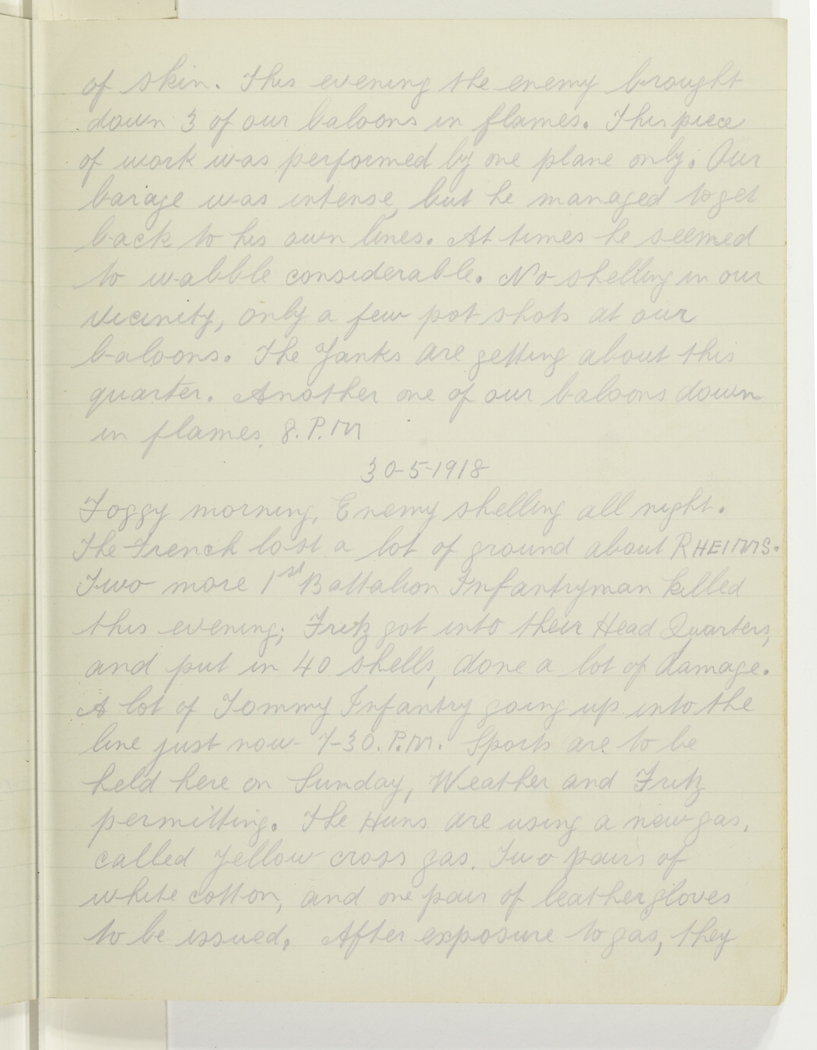 of skin. This evening the enemy brought
down 3 of our baloons in flames. This piece
of work was performed by one plane only. Our
barage was intense, but he managed to get
back to his own lines. At times he seemed
to wabble considerable. No shelling in our
vicinity, only a few pot shots at our
baloons. The Yanks are getting about this
quarter. Another one of our baloons down
in flames, 8. P.M
30-5-1918
Foggy morning, Enemy shelling all night.
The French lost a lot of ground about RHEIMS.
Two more 1st Battalion Infantryman killed
this evening; Fritz got into their Head Quarters,
and put in 40 shells, done a lot of damage.
A lot of Tommy Infantry going up into the
line just now - 7-30. P.M. Sports are to be
held here on Sunday, Weather and Fritz
permitting. The Huns are using a new gas,
called yellow cross gas. Two pairs of
white cotton, and one pair of leather gloves
to be issued. After exposure to gas, they